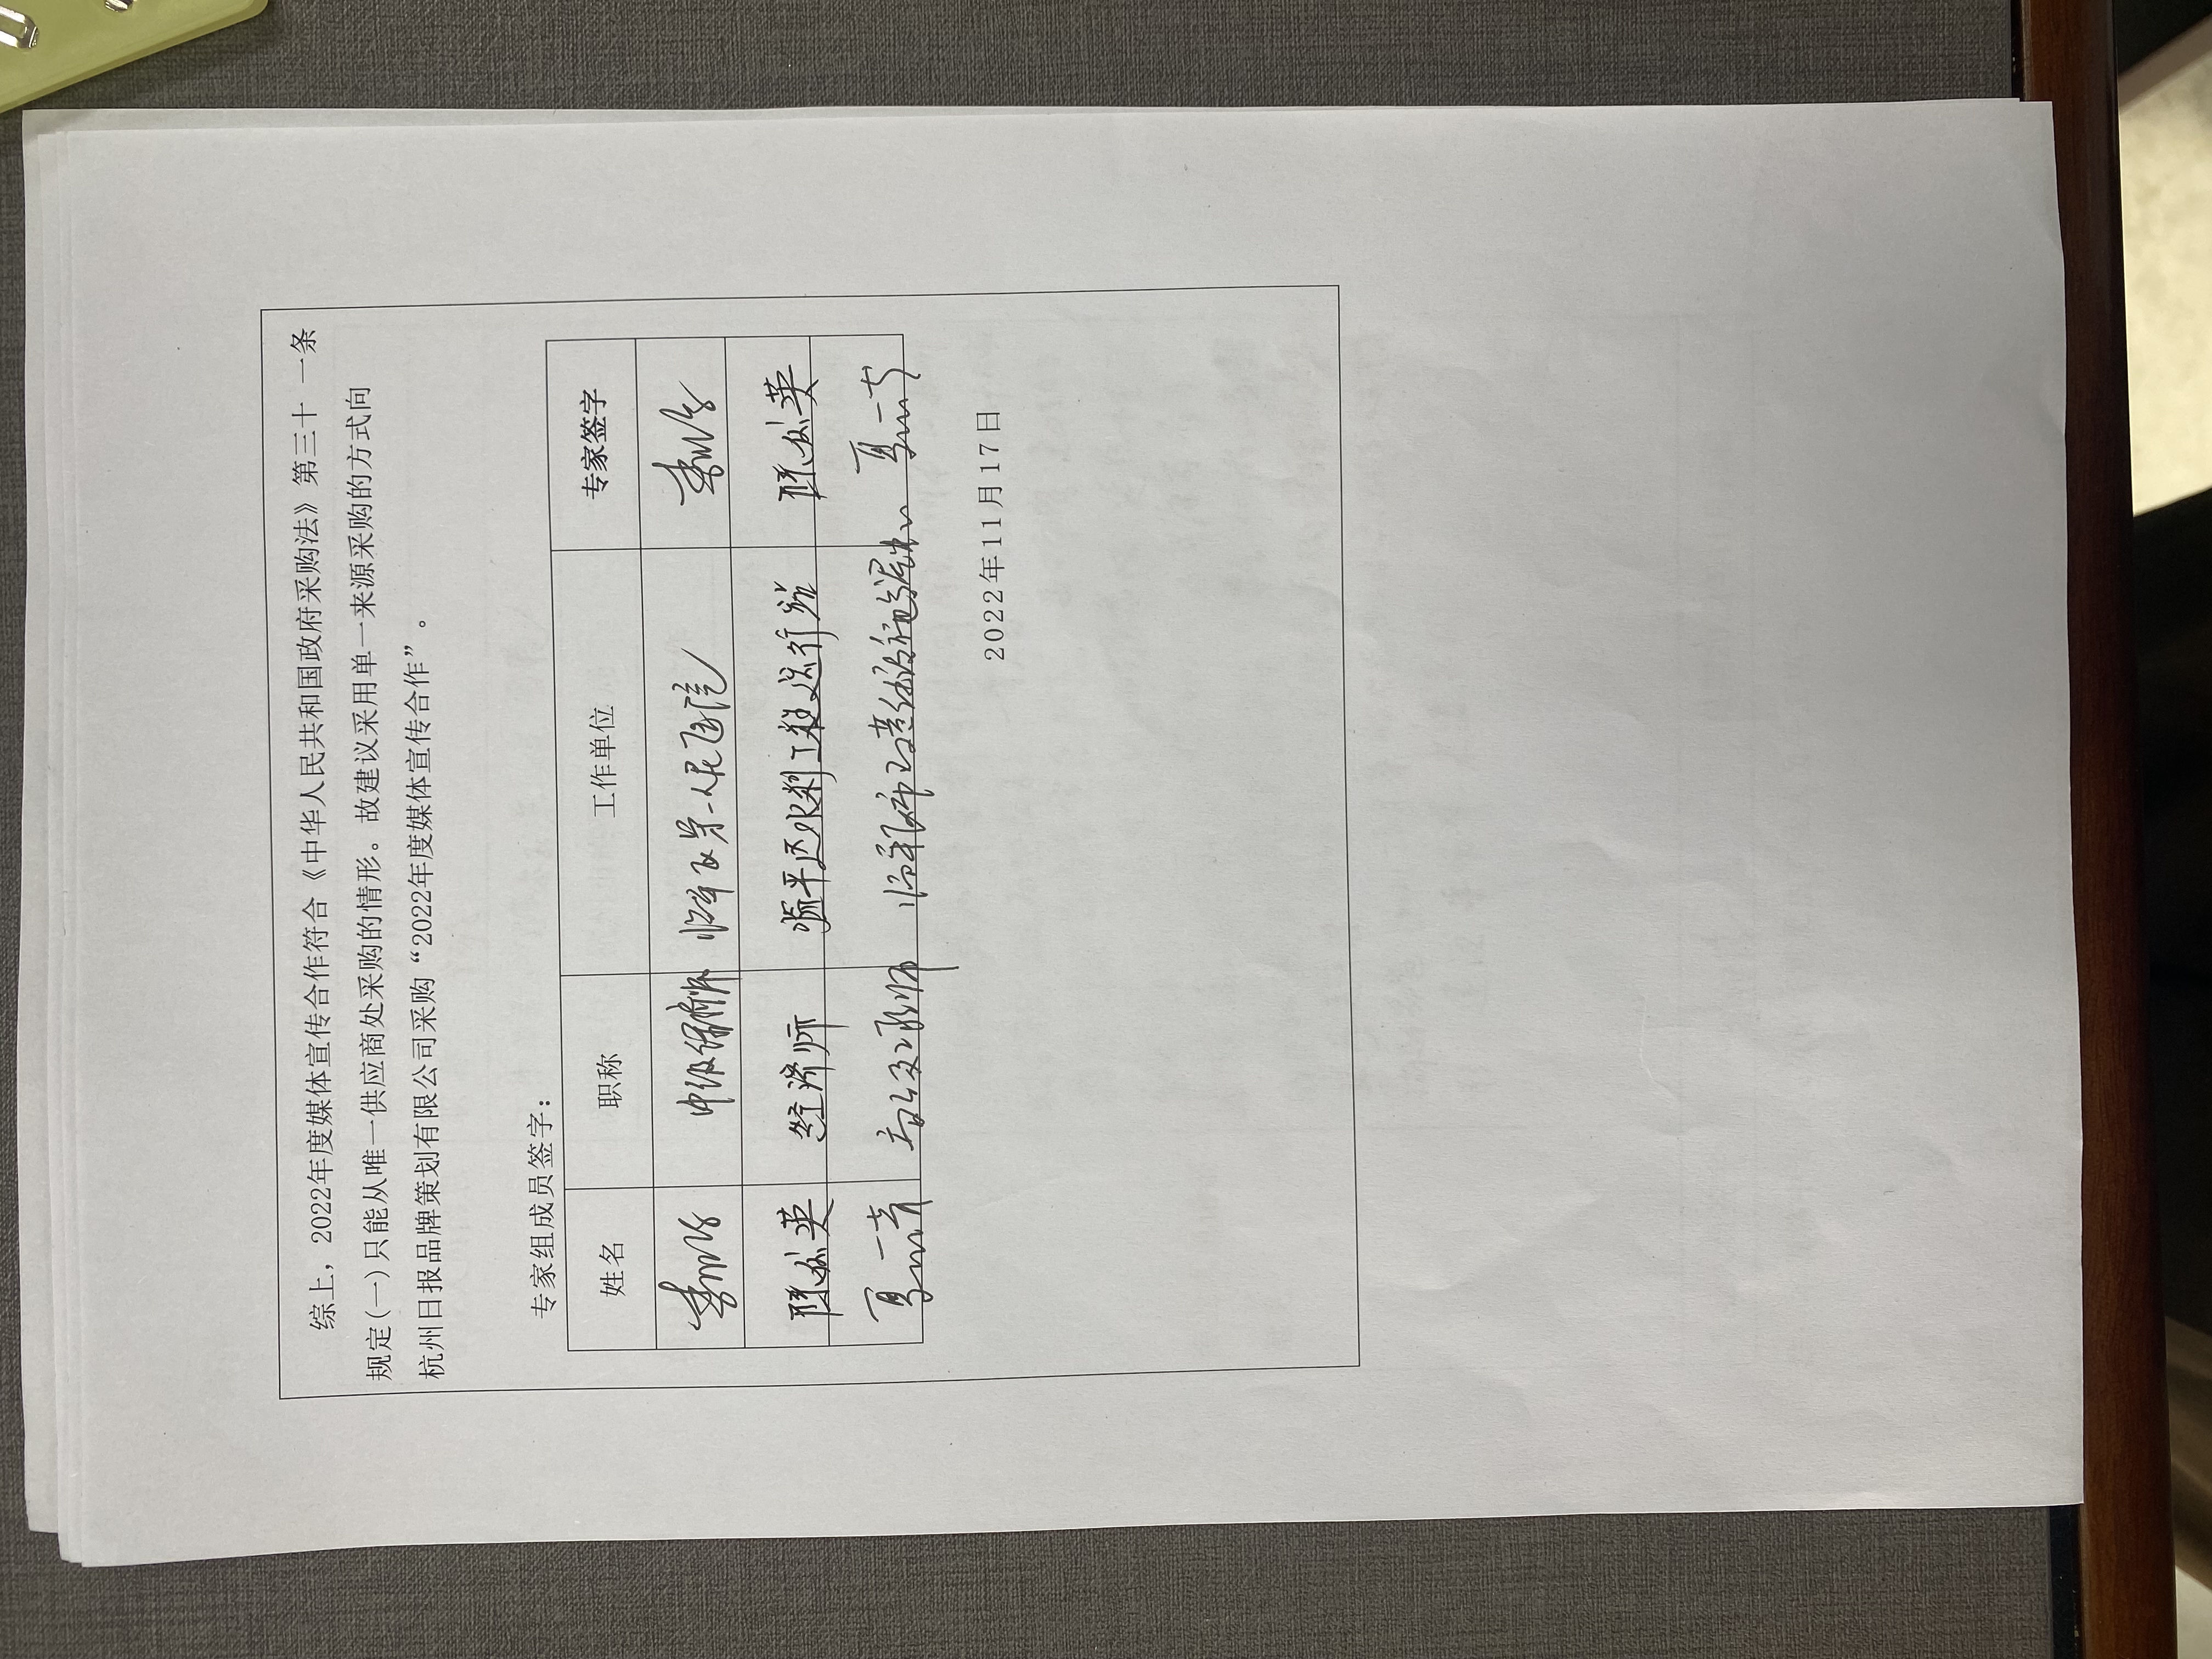 综上，2022年度媒体宣传合作符合《中华人民共和国政府采购法》第三十一条
规定(一)只能从唯一供应商处采购的情形。故建议采用单一来源采购的方式向
杭州日报品牌策划有限公司采购“2022年度媒体宣传合作”。
专家组成员签字：
姓名 职称 工作单位 专家签字
中级 第一人民医院
经济师 临平区水利工程运行
高级工程师
2022年11月17日